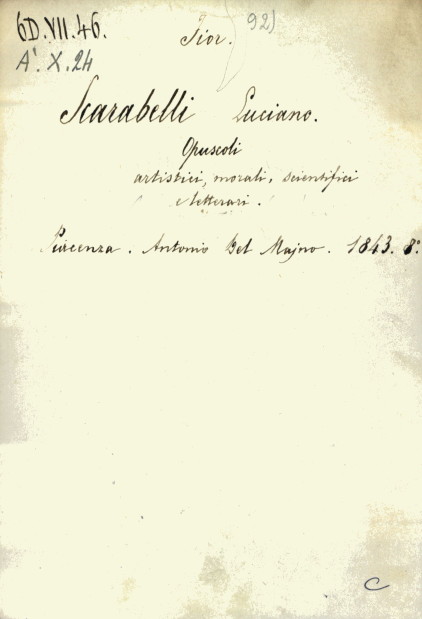 6D.VII.46.
A'. X. 24
Fior. 92)
Scarabelli Luciano.
Opuscoli
artistici, morali, scientifici
e letterari.
Piacenza. Antonio Del Majno. 1843. 8º
C